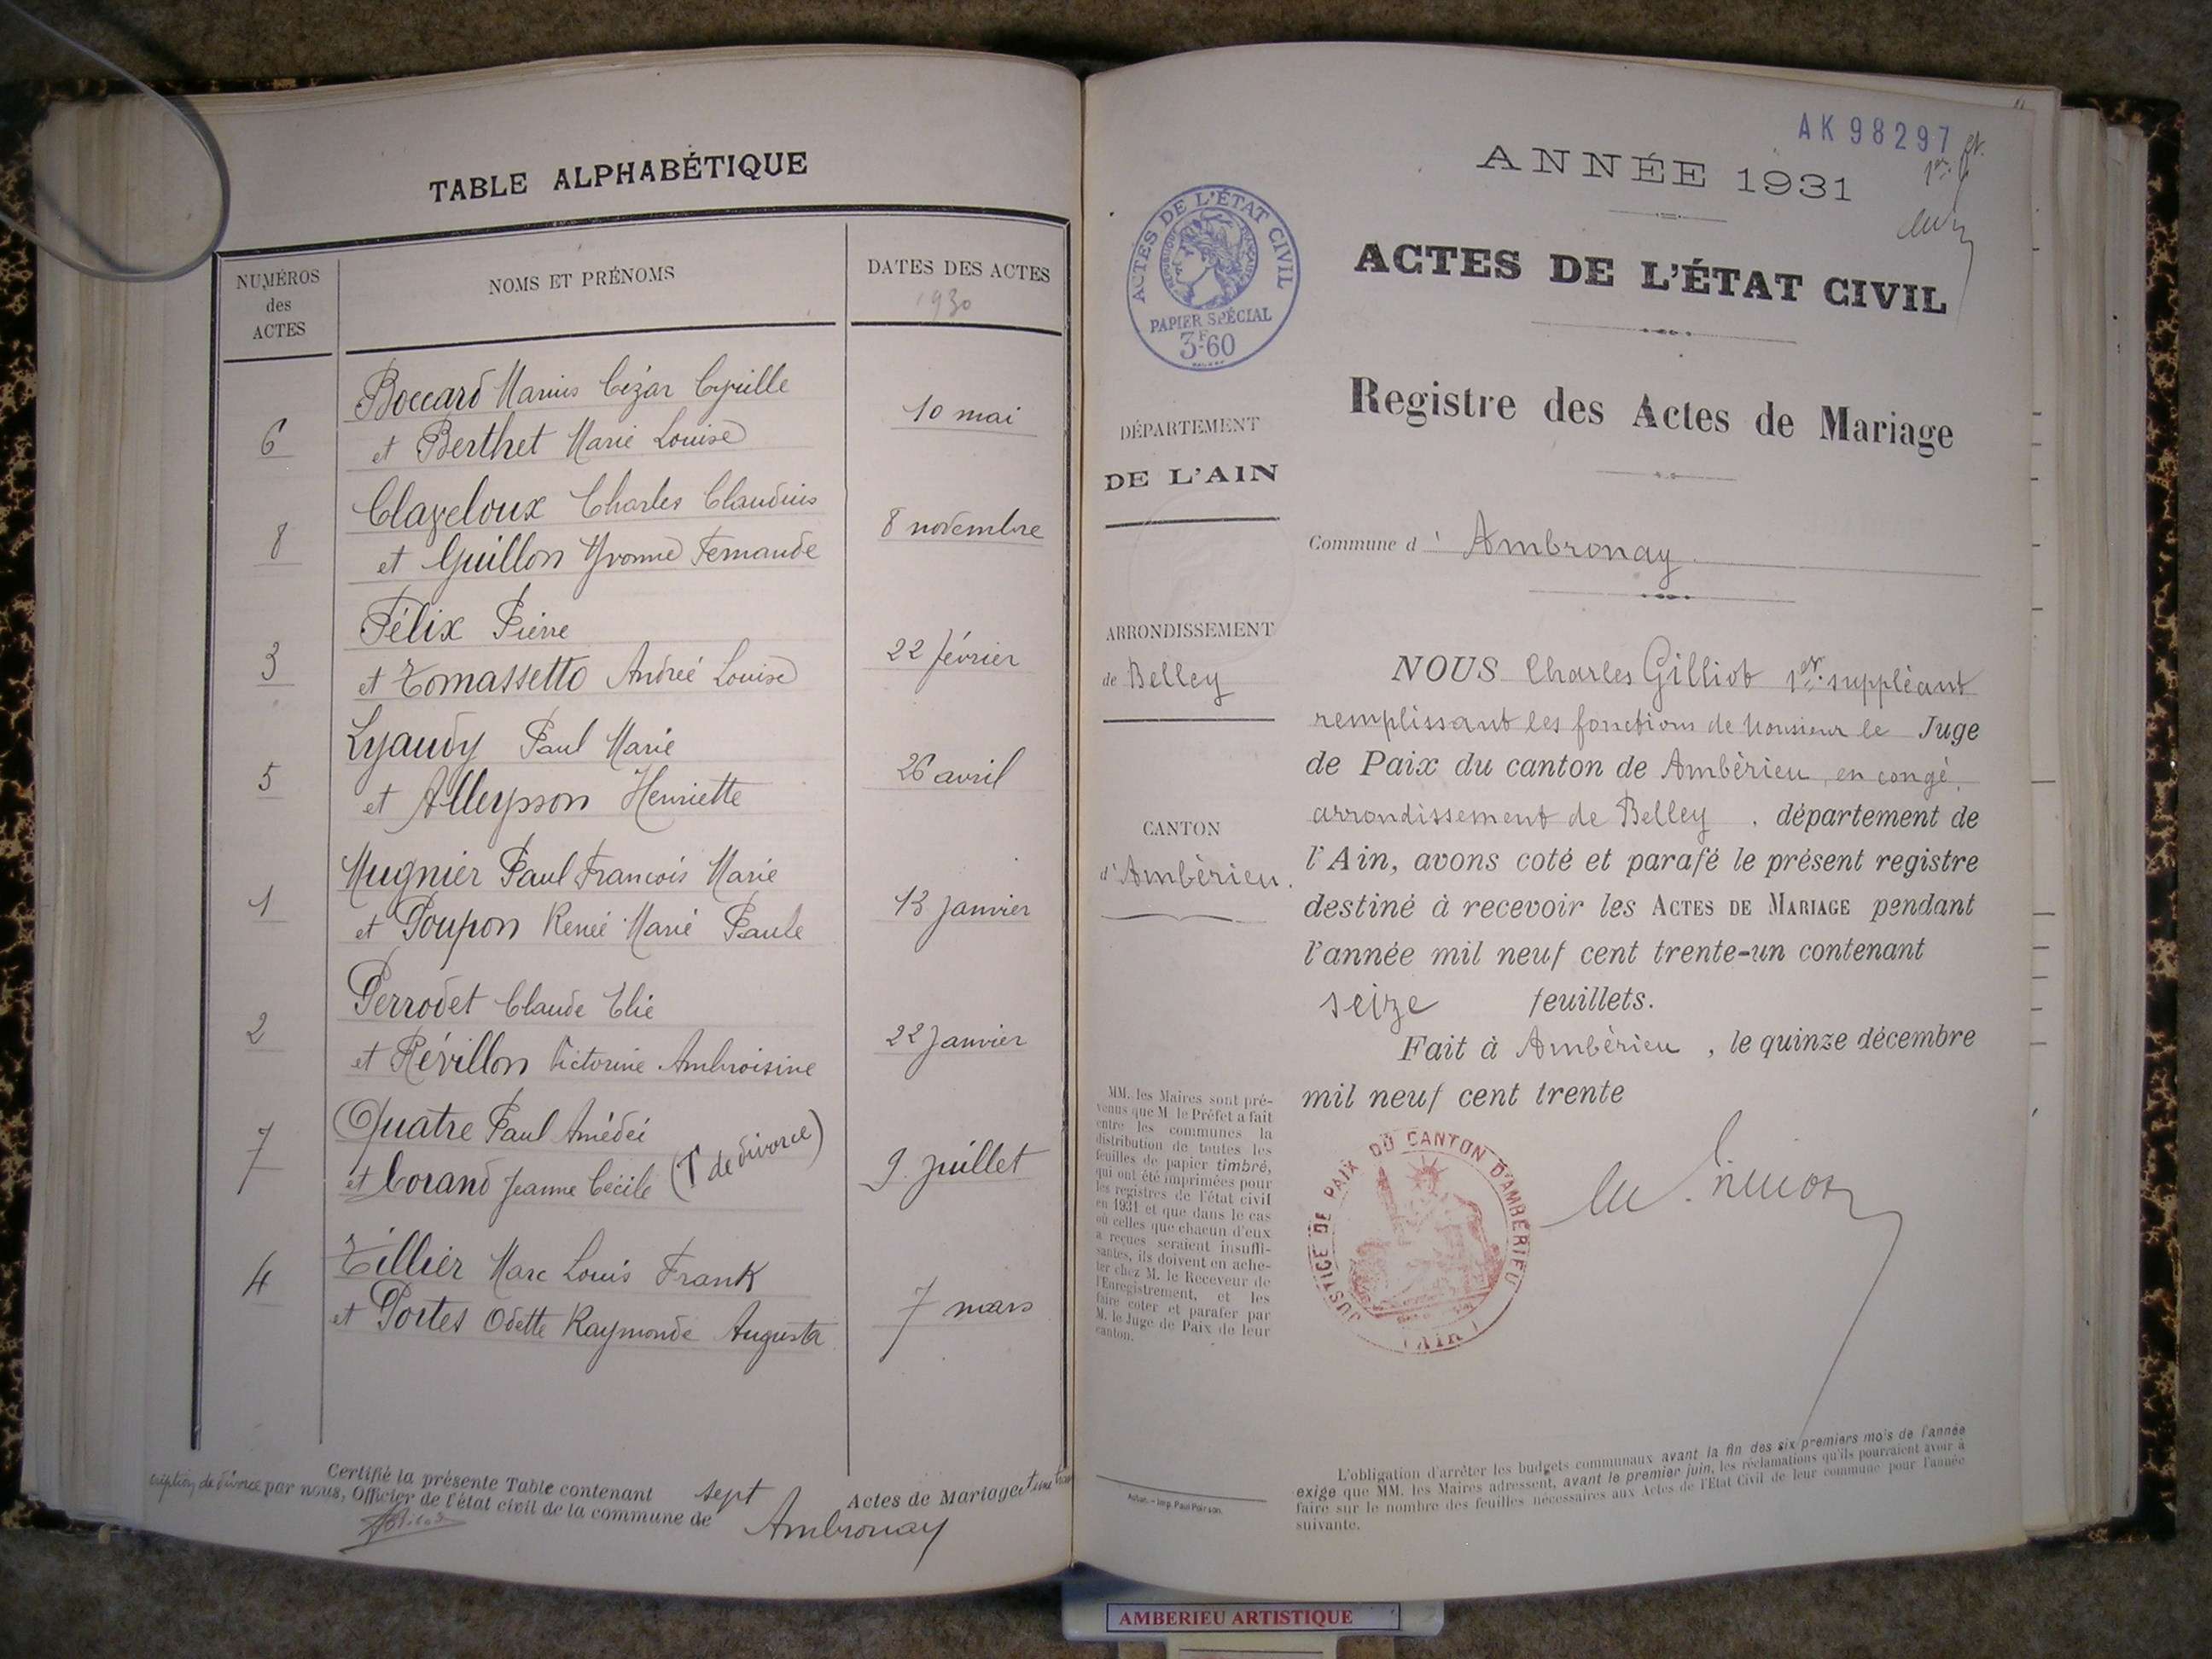 TABLE ALPHABÉTIQUE
NUMÉROS
des
ACTES
NOMS ET PRÉNOMS
DATES DES ACTES
1930
Boccard Marius Cézar Cyrille
6
et Berthet Marie Louise
10 mai
Claveloux Charles Claudius
8
et Guillon Yvonne Fernande
8 novembre
Félix Pierre
3
et Tomassetto Andrée Louise
22 février
Lyaudy Paul Marie
5
et Alleysson Henriette
26 avril
Mugnier Paul François Marie
1
et Poupon Renée Marie Paule
13 janvier
Perrodet Claude Elie
2
et Révillon Victorine Ambroisine
22 janvier
Quatre Paul Amédéi
7
et Corand Jeanne Cécile (T de divorce)
9 juillet
Tillier Marc Louis Frank
4
et Portes Odette Raymonde Augusta
7 mars
Certifié la présente Table contenant sept Actes de Mariage et une
cription de divorce par nous, Officier de l'état civil de la commune de Ambronay
AK 98297
1er
ANNÉE 1931
ACTES DE L'ÉTAT CIVIL
ACTES DE L'ÉTAT CIVIL
RÉPUBLIQUE FRANÇAISE
PAPIER SPÉCIAL
3F60
Registre des Actes de Mariage
DÉPARTEMENT
DE L'AIN
Commune d' Ambronay
ARRONDISSEMENT
de Belley
CANTON
d'Ambérieu.
NOUS Charles Gilliot 1er suppléant
remplissant les fonctions de Monsieur le Juge
de Paix du canton de Ambérieu, en congé,
arrondissement de Belley . département de
l'Ain, avons coté et parafé le présent registre
destiné à recevoir les ACTES DE MARIAGE pendant
l'année mil neuf cent trente-un contenant
seize feuillets.
Fait à Ambérieu , le quinze décembre
mil neuf cent trente
MM. les Maires sont pré-
venus que M. le Préfet a fait
entre les communes la
distribution de toutes les
feuilles de papier timbré,
qui ont été imprimées pour
les registres de l'état civil
en 1931 et que dans le cas
où celles que chacun d'eux
a reçues seraient insuffi-
santes, ils doivent en ache-
ter chez M. le Receveur de
l'Enregistrement, et les
faire coter et parafer par
M. le Juge de Paix de leur
canton.
JUSTICE DE PAIX DU CANTON D'AMBÉRIEU
(AIN)
L'obligation d'arrêter les budgets communaux avant la fin des six premiers mois de l'année
exige que MM. les Maires adressent, avant le premier juin, les réclamations qu'ils pourraient avoir à
faire sur le nombre des feuilles nécessaires aux Actes de l'Etat Civil de leur commune pour l'année
suivante.
AMBERIEU ARTISTIQUE